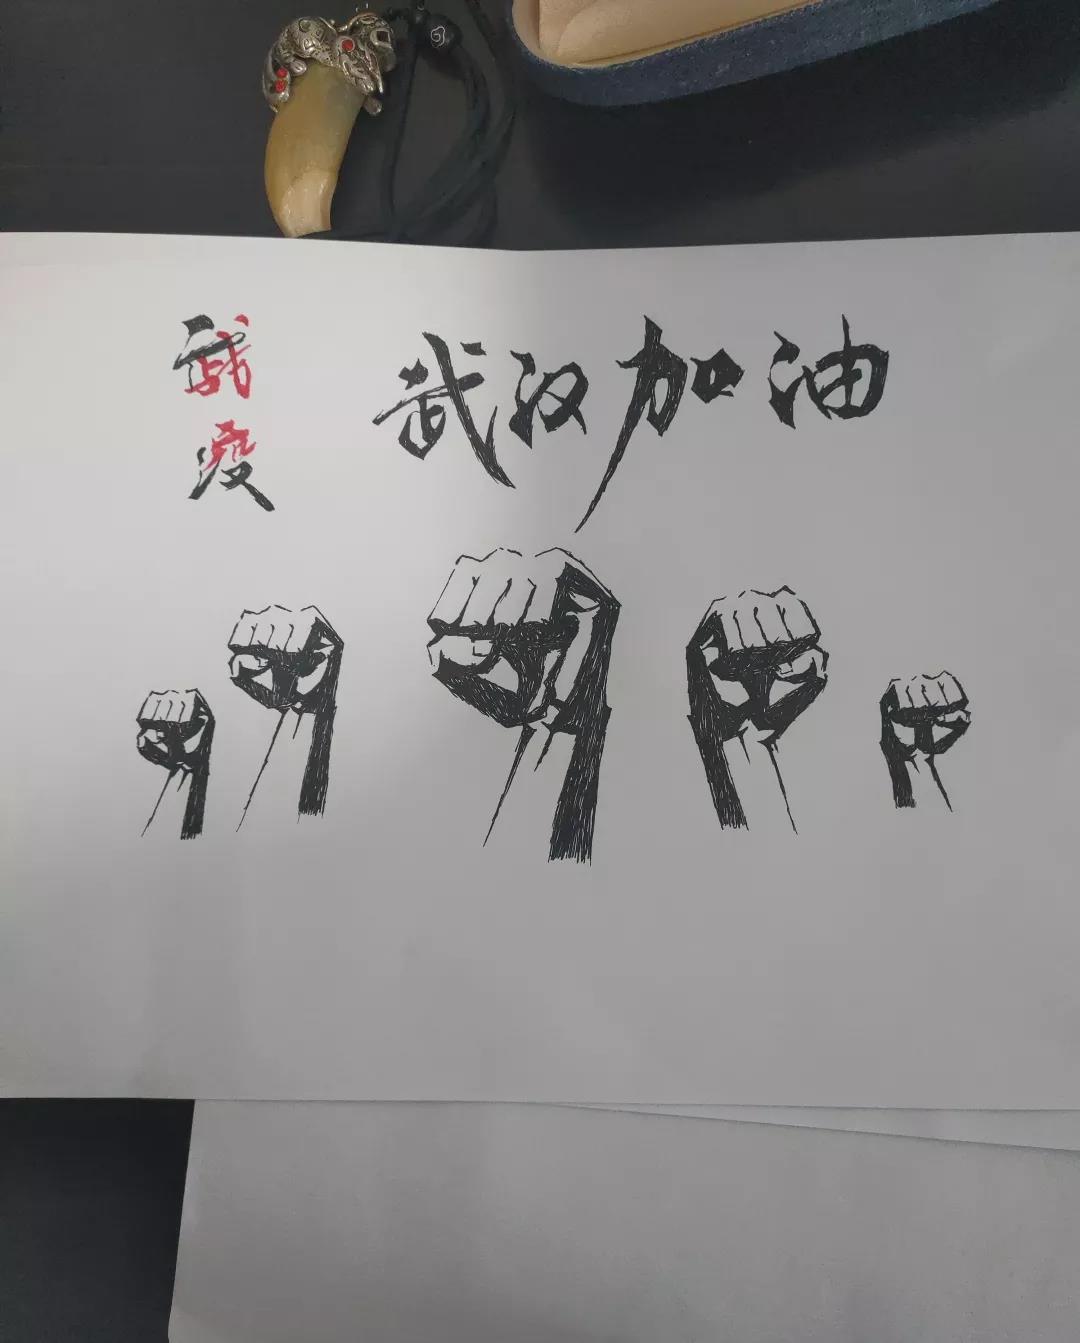 战疫
武汉加油